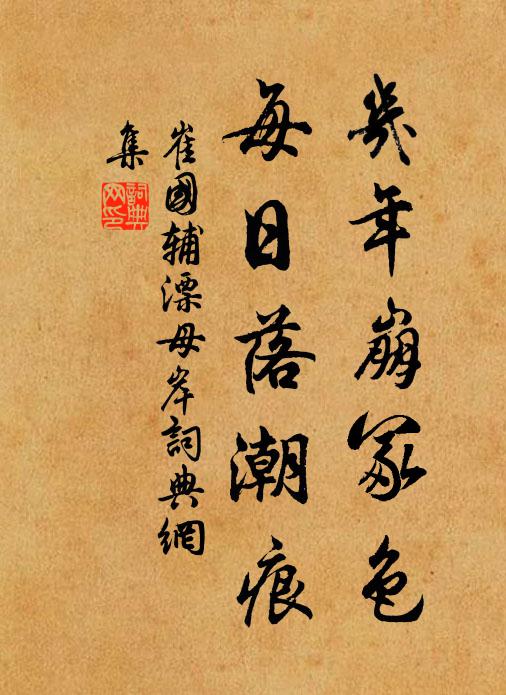 幾年崩冢色
每日落潮痕
崔國輔漂母岸詞典網
集
詞典网印